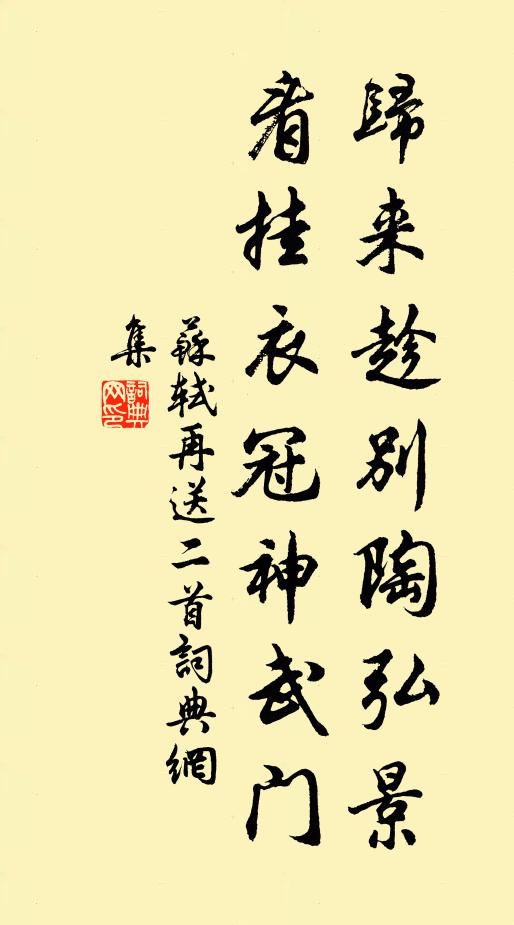 歸来趁別陶弘景
看挂衣冠神武门
蘇軾再送二首詞典網
集
詞典網印